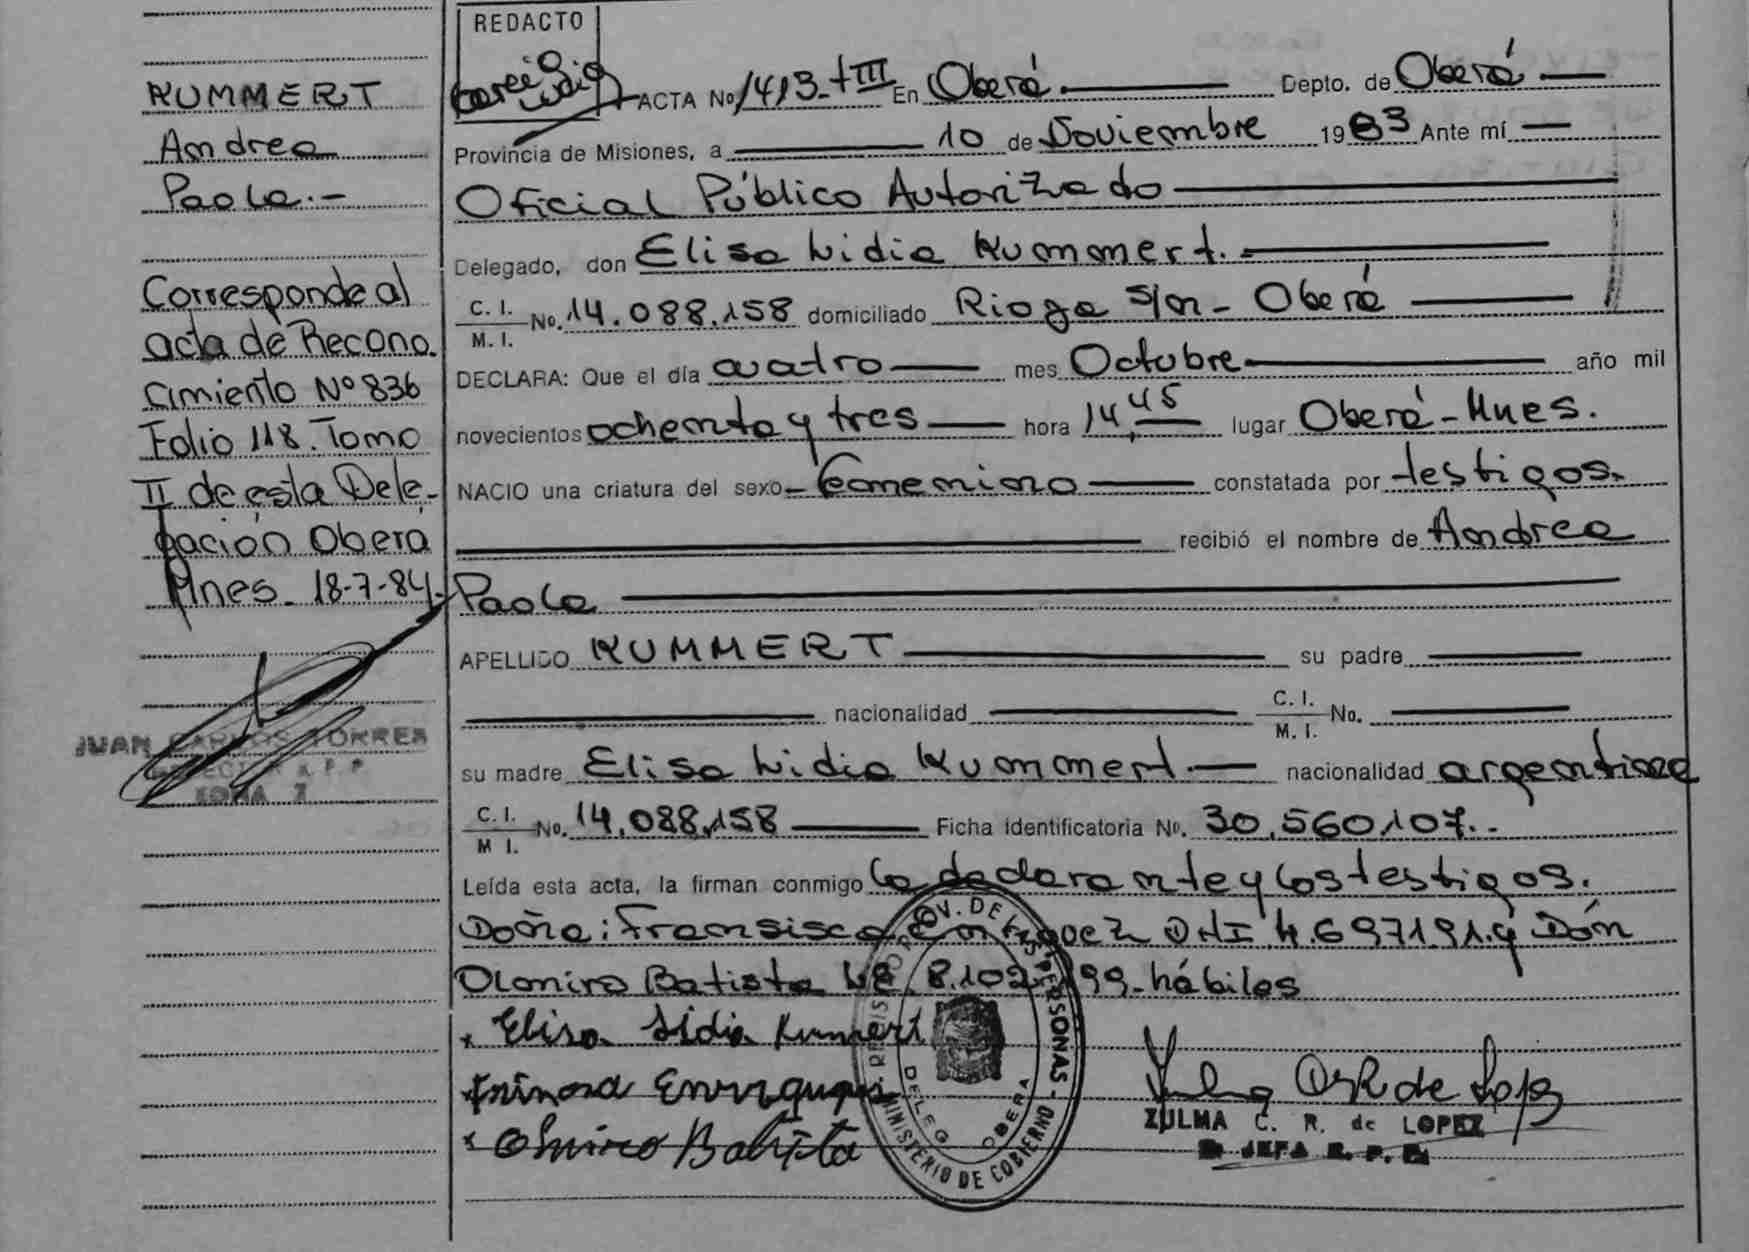 KUMMERT
Andrea
Paola.-
Corresponde al
acta de Recono.
cimiento Nº 836
Folio 118. Tomo
II de esta Dele-
gación Oberá
Mnes. 18-7-84.
JUAN CARLOS TORRES
ZONA I
REDACTO
ACTA No 1413-tIII En Oberá. Depto. de Oberá
Provincia de Misiones, a 10 de Noviembre 1983 Ante mí
Oficial Público Autorizado
Delegado, don Elisa Lidia Kummert.
C. I. / M. I. No. 14.088.158 domiciliado Rioja s/n - Oberá
DECLARA: Que el día cuatro mes Octubre año mil
novecientos ochenta y tres hora 14,45 lugar Oberá - Mnes.
NACIO una criatura del sexo femenino constatada por testigos.
recibió el nombre de Andrea
Paola
APELLIDO KUMMERT su padre
nacionalidad C. I. / M. I. No.
su madre Elisa Lidia Kummert nacionalidad argentina
C. I. / M I. No. 14.088.158 Ficha identificatoria No. 30.560.107.-
Leída esta acta, la firman conmigo la declarante y los testigos.
Doña: Fransisca DNI 4.697191. y Dón
Olmiro Batista LE 8.102 99 - hábiles
x Elisa Lidia Kummert
x Olmiro Batista
PROV. DE LAS PERSONAS - MINISTERIO DE GOBIERNO
DELEG OBERA
ZULMA C. R. de LOPEZ
JEFA R. P. P.